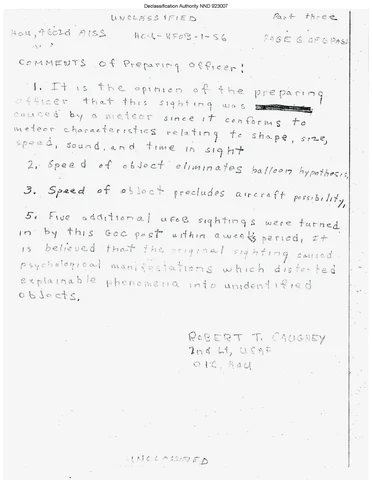 Declassification Authority NND 923007
UNCLASSIFIED
Part three
HOU, 4602d AISS
HC-4-UFOB-1-56
PAGE 6 OF 6 PAGES
COMMENTS of Preparing Officer:
1. It is the opinion of the preparing
officer that this sighting was
caused by a meteor since it conforms to
meteor characteristics relating to shape, size,
speed, sound, and time in sight
2. Speed of object eliminates balloon hypothesis.
3. Speed of object precludes aircraft possibility.
5. Five additional UFOB sightings were turned
in by this GOC post within a week's period. It
is believed that the original sighting caused
psychological manifestations which distorted
explainable phenomena into unidentified
objects.
ROBERT T. CAUGHEY
2nd Lt, USAF
OIC, HOU
UNCLASSIFIED